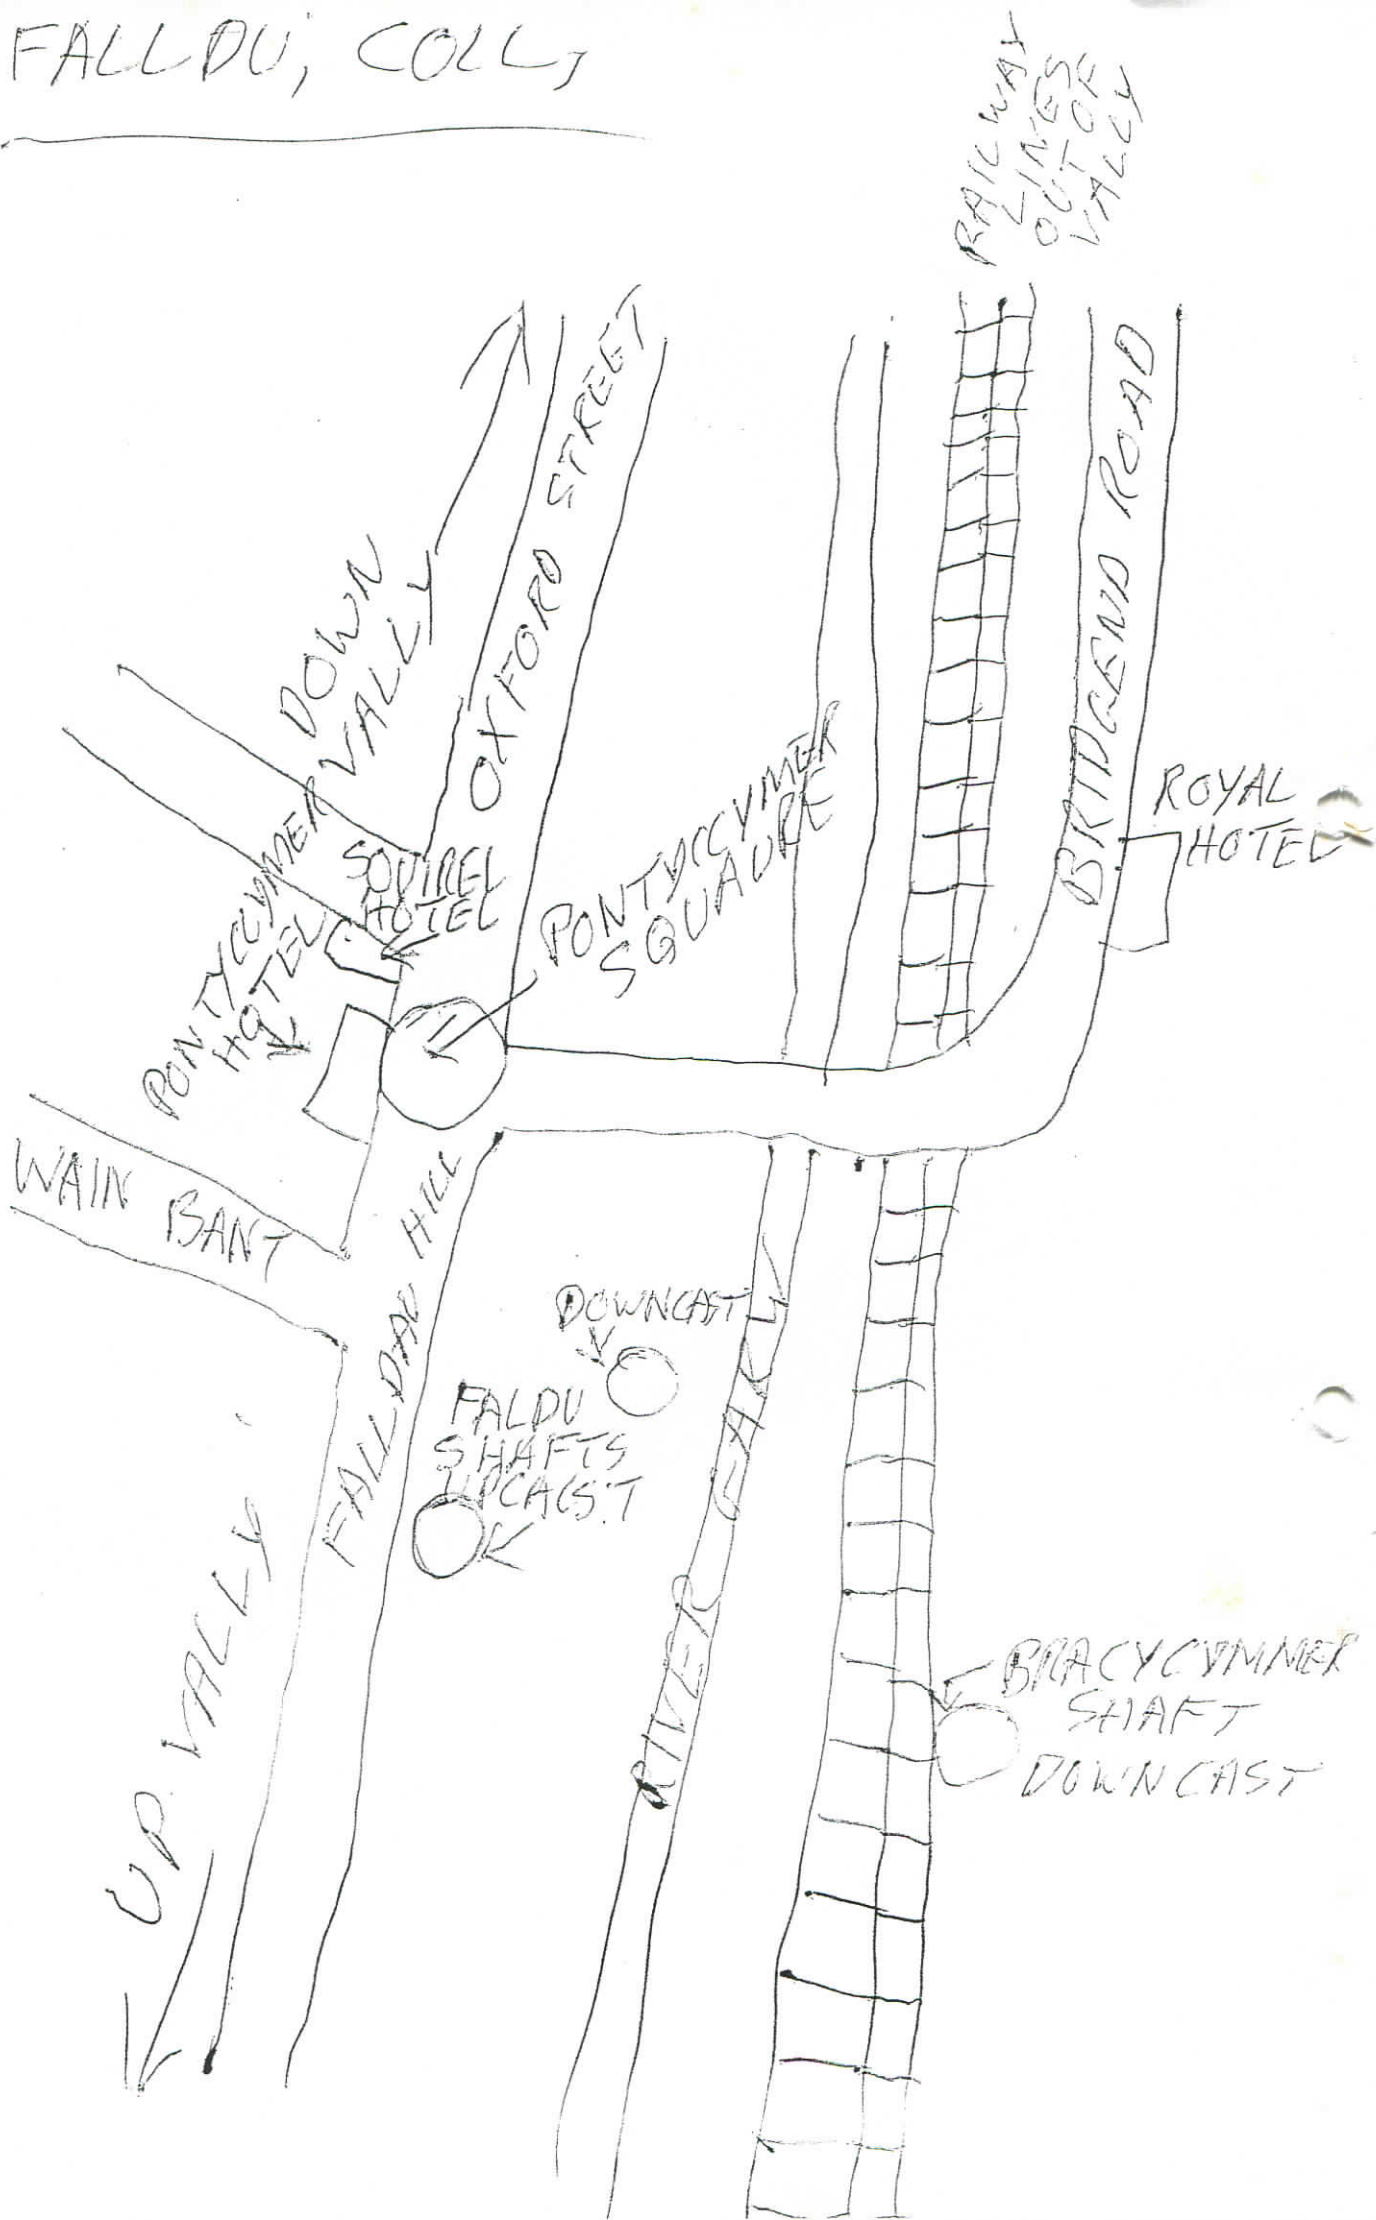 FALLDU, COLL,
RAILWAY
LINES
OUT OF
VALLY
OXFORD STREET
BRIDGEND ROAD
DOWN
VALLY
ROYAL
HOTEL
SQUIREL
HOTEL
PONTYCCYMER
SQUAURE
PONTYCCYMER
HOTEL
WAIN BANT
FALLDAU HILL
DOWNCAST
FALDU
SHAFTS
UPCAST
RIVER GARW
UP VALLY
BRACYCYMMER
SHAFT
DOWNCAST